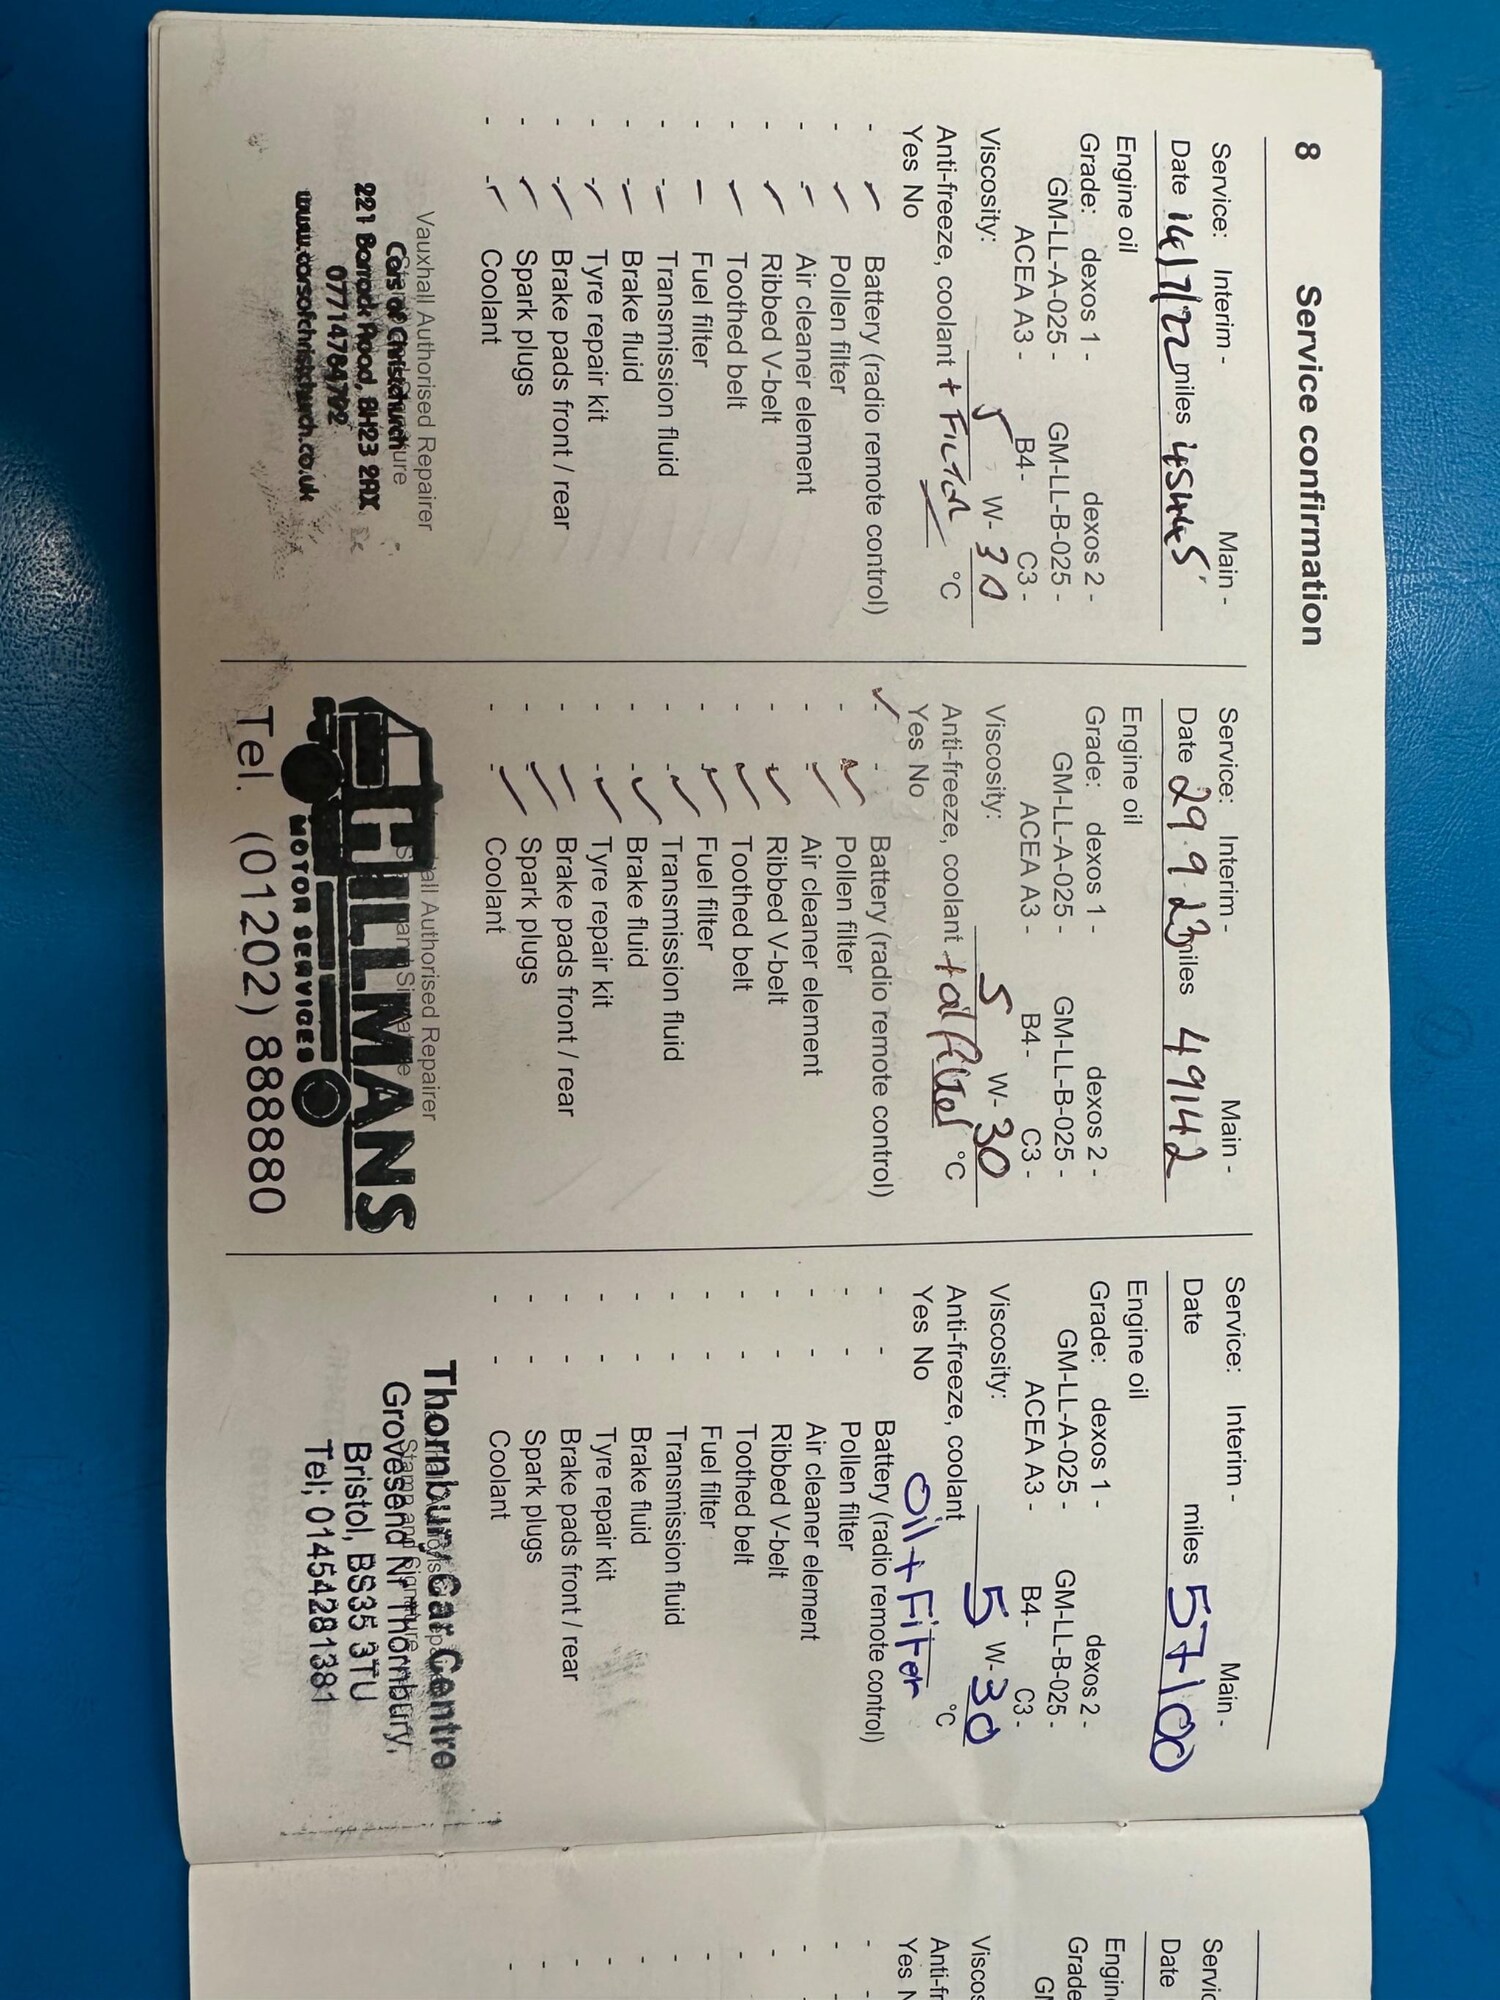 8 Service confirmation
Service: Interim - Main -
Date 14/7/22 miles 45445
Engine oil
Grade: dexos 1 - dexos 2 -
GM-LL-A-025 - GM-LL-B-025 -
ACEA A3 - B4 - C3 -
Viscosity: 5 W- 30
Anti-freeze, coolant + FILTER °C
Yes No
- - Battery (radio remote control)
- - Pollen filter
- - Air cleaner element
- - Ribbed V-belt
- - Toothed belt
- - Fuel filter
- - Transmission fluid
- - Brake fluid
- - Tyre repair kit
- - Brake pads front / rear
- - Spark plugs
- - Coolant
Vauxhall Authorised Repairer
Cars of Christchurch
221 Barrack Road, BH23 2AX
07714784702
www.carsofchristchurch.co.uk
Service: Interim - Main -
Date 29.9.23 miles 49142
Engine oil
Grade: dexos 1 - dexos 2 -
GM-LL-A-025 - GM-LL-B-025 -
ACEA A3 - B4 - C3 -
Viscosity: 5 W- 30
Anti-freeze, coolant + oil filter °C
Yes No
- - Battery (radio remote control)
- - Pollen filter
- - Air cleaner element
- - Ribbed V-belt
- - Toothed belt
- - Fuel filter
- - Transmission fluid
- - Brake fluid
- - Tyre repair kit
- - Brake pads front / rear
- - Spark plugs
- - Coolant
Authorised Repairer
HILLMANS
MOTOR SERVICES
Tel. (01202) 888880
Service: Interim - Main -
Date miles 57100
Engine oil
Grade: dexos 1 - dexos 2 -
GM-LL-A-025 - GM-LL-B-025 -
ACEA A3 - B4 - C3 -
Viscosity: 5 W- 30
Anti-freeze, coolant °C
Yes No Oil + Filter
- - Battery (radio remote control)
- - Pollen filter
- - Air cleaner element
- - Ribbed V-belt
- - Toothed belt
- - Fuel filter
- - Transmission fluid
- - Brake fluid
- - Tyre repair kit
- - Brake pads front / rear
- - Spark plugs
- - Coolant
Thornbury Car Centre
Stamp and Signature
Grovesend Nr Thornbury,
Bristol, BS35 3TU
Tel; 01454281381
Date